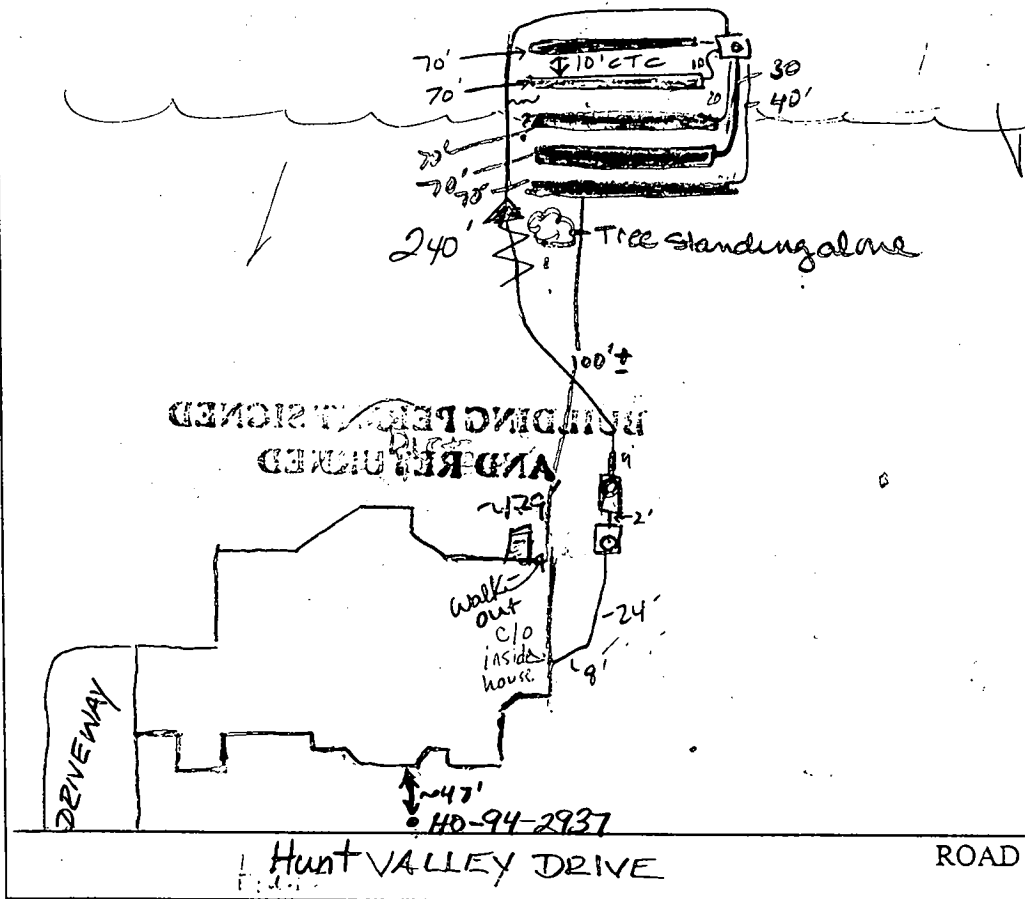 70'
10' CTC
10
30
70'
20
40'
70'
70'
70'
240'
Tree standing alone
100' ±
BUILDING PERMIT SIGNED
AND RETURNED
2'
walk-
out
c/o
inside
house
24'
8'
DRIVEWAY
~47'
HO-94-2937
Hunt VALLEY DRIVE
ROAD